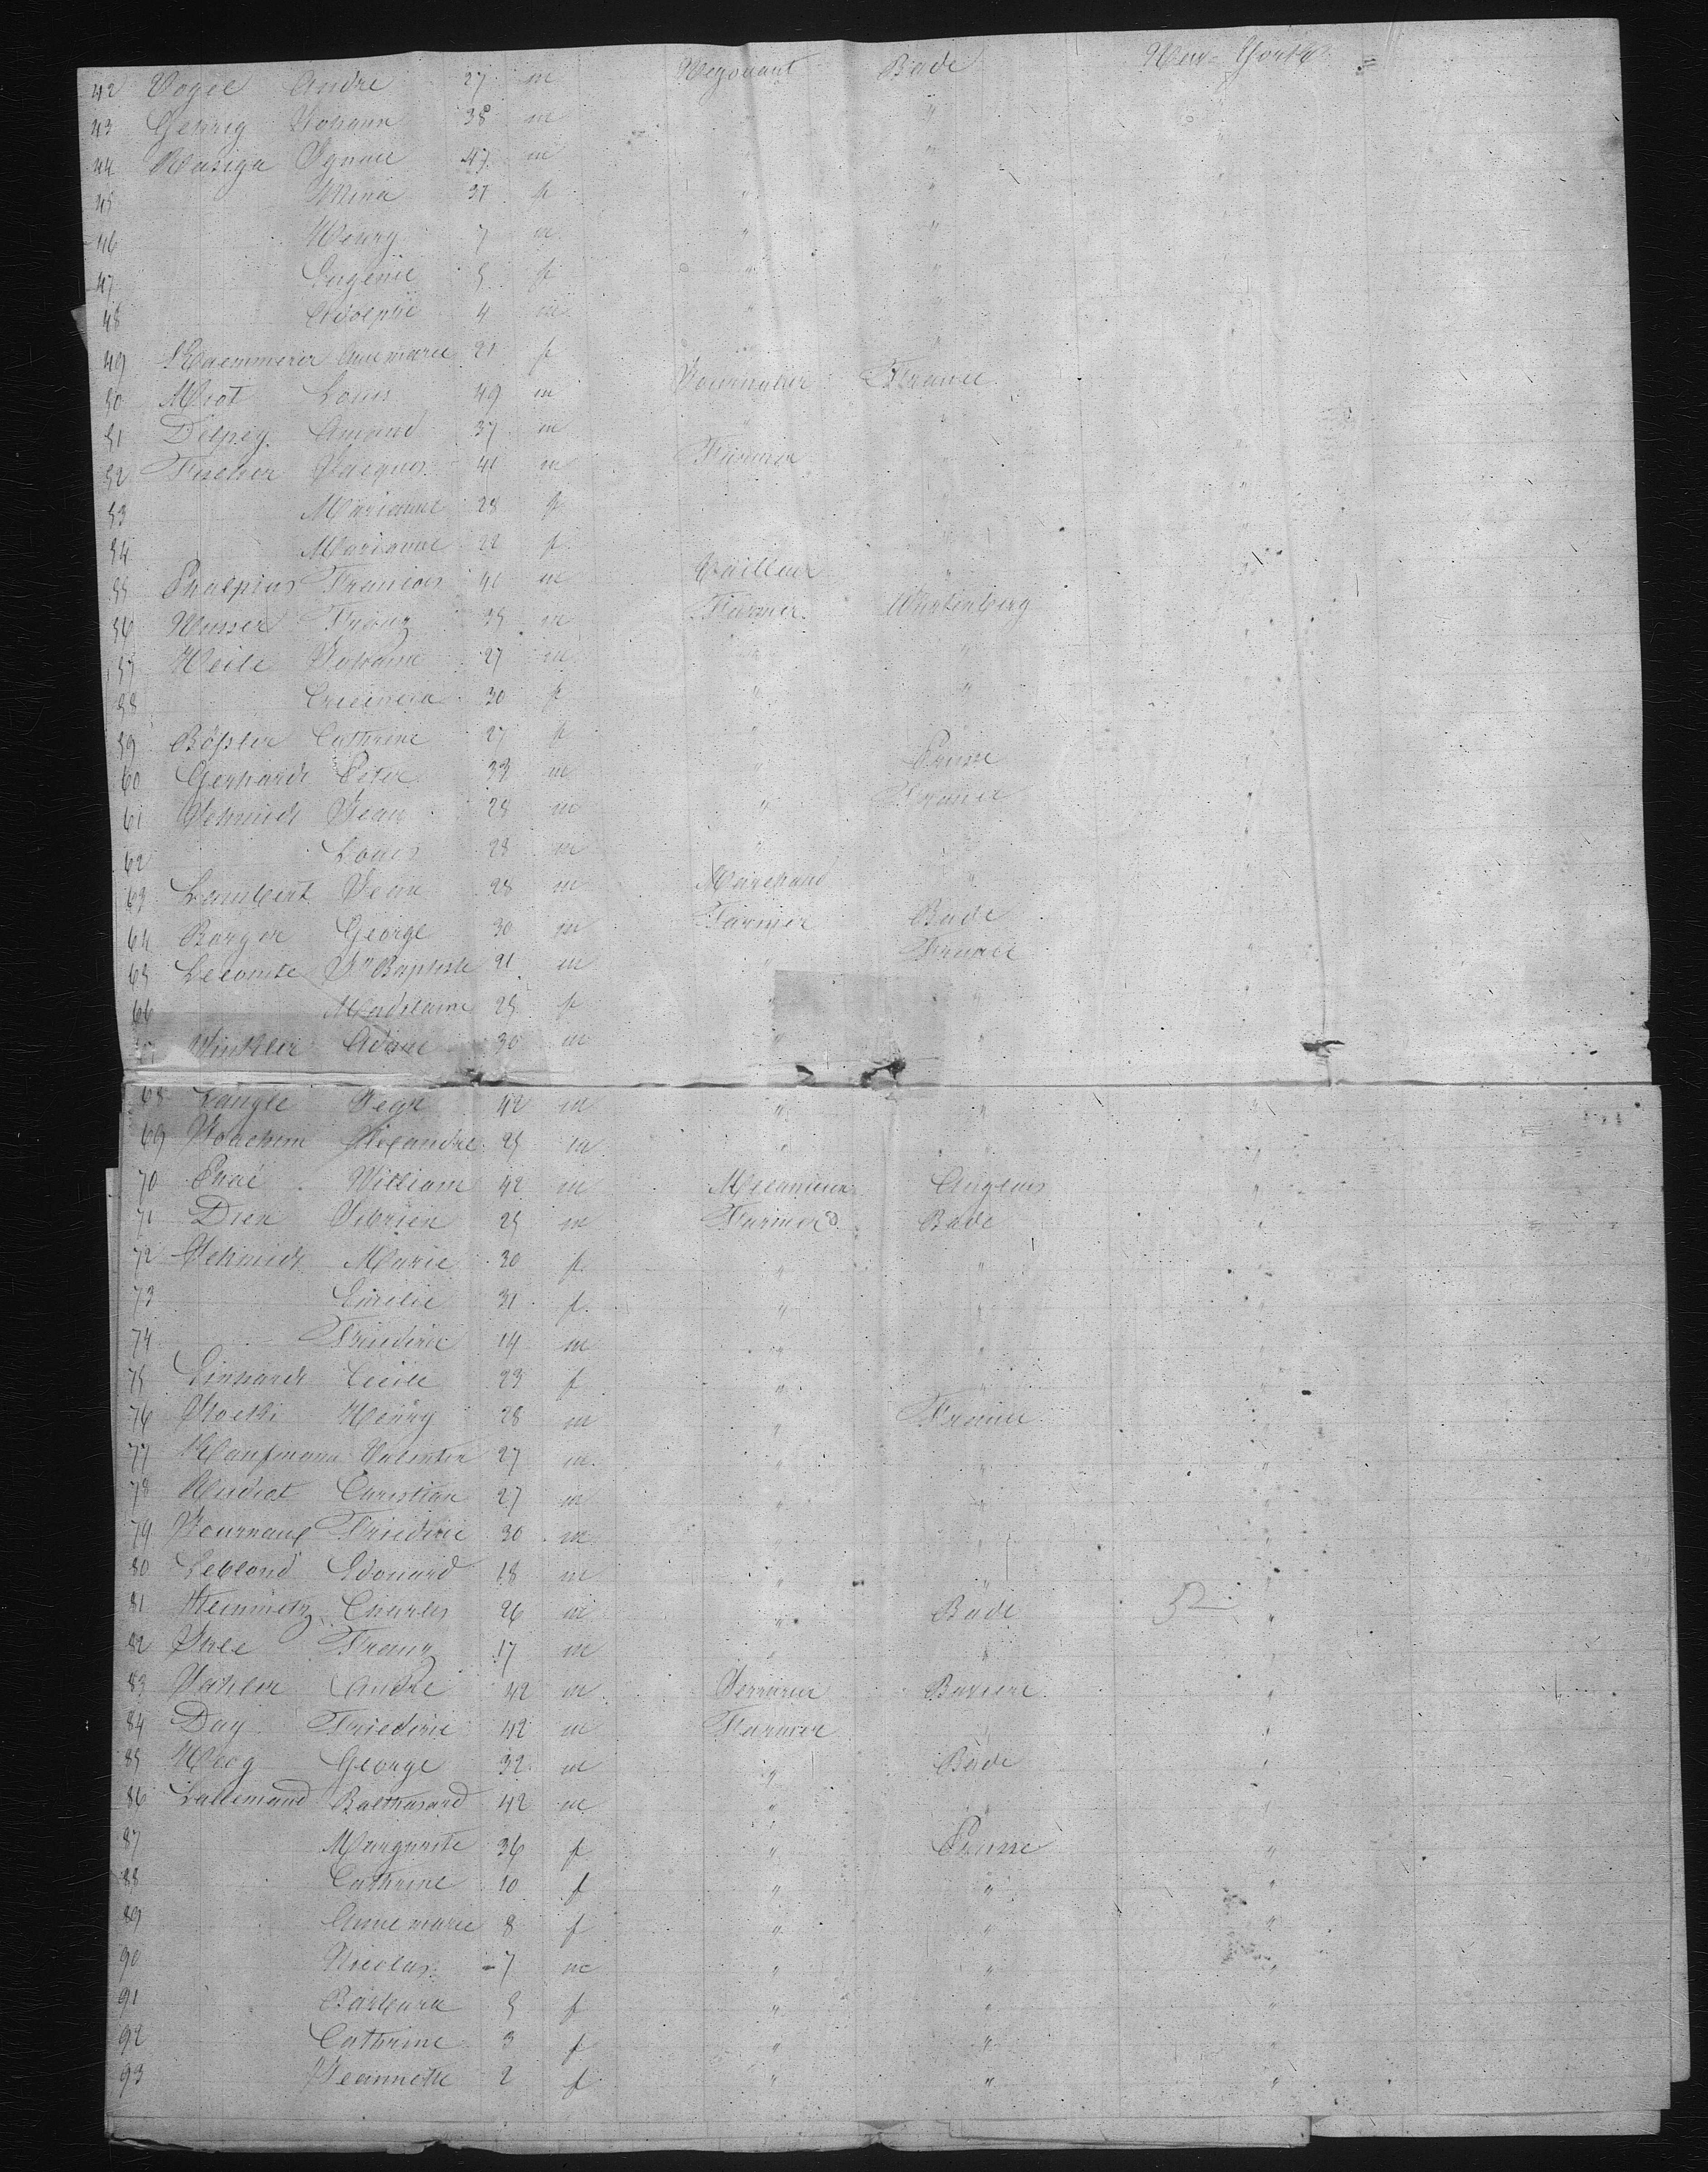 42 Vogel André 27 m Negociant Bade New-York
43 Gehrig Johann 38 m " "
44 Ignace 47 m " " "
45 Mina 37 f " "
46 Henry 7 m " "
47 Eugénie 5 f " "
48 Adolphe 4 m " "
49 Kaemmerer Anne marie 21 f " "
50 Miot Louis 49 m Journalier France
51 Delpey Amand 37 m " "
52 Fischer Jacques 41 m Farmer " "
53 Marianne 28 f "
54 Marianne 22 f " "
55 Francois 41 m Tailleur " "
56 Musser Franz 35 m Farmer Wurtemberg "
57 Heile Johann 27 m " " "
58 30 f " " "
59 Bößler Cathrine 27 f "
60 Gerhardt Peter 33 m " Prusse "
61 Schmidt Jean 28 m " France "
62 Louis 28 m "
63 Lambert Jean 28 m Marchand "
64 Barger George 30 m Farmer Bade
65 Lecomte Jn Baptiste 21 m " France "
66 Madelaine 25 f " " "
67 Winkler Adam 30 m " "
68 Langle 42 m " " "
69 Joachim Alexandre 25 m " "
70 William 42 m Mecanicien Anglais "
71 Dien 25 m Farmer Bade "
72 Schmidt Marie 30 f " "
73 Emilie 31 f " "
74 Friederic 14 m " " "
75 Einhardt Cécile 23 f " " "
76 Henry 28 m " France
77 Kaufmann Valentin 27 m " " "
78 Christian 27 m " " "
79 Friederic 30 m " " "
80 Leblond Edouard 18 m " " "
81 Steinmetz Charles 26 m " Bade "
82 Franz 17 m " " "
83 André 42 m Serrurier Baviere "
84 Day Friederic 42 m Farmer " "
85 George 32 m " Bade "
86 Lallemand Balthasard 42 m " " "
87 Marguerite 36 f " Prusse "
88 Cathrine 10 f " " "
89 Anne marie 8 f " " "
90 Nicolas 7 m " " "
91 Barbara 5 f " " "
92 Cathrine 3 f " " "
93 Jeannette 2 f " " "